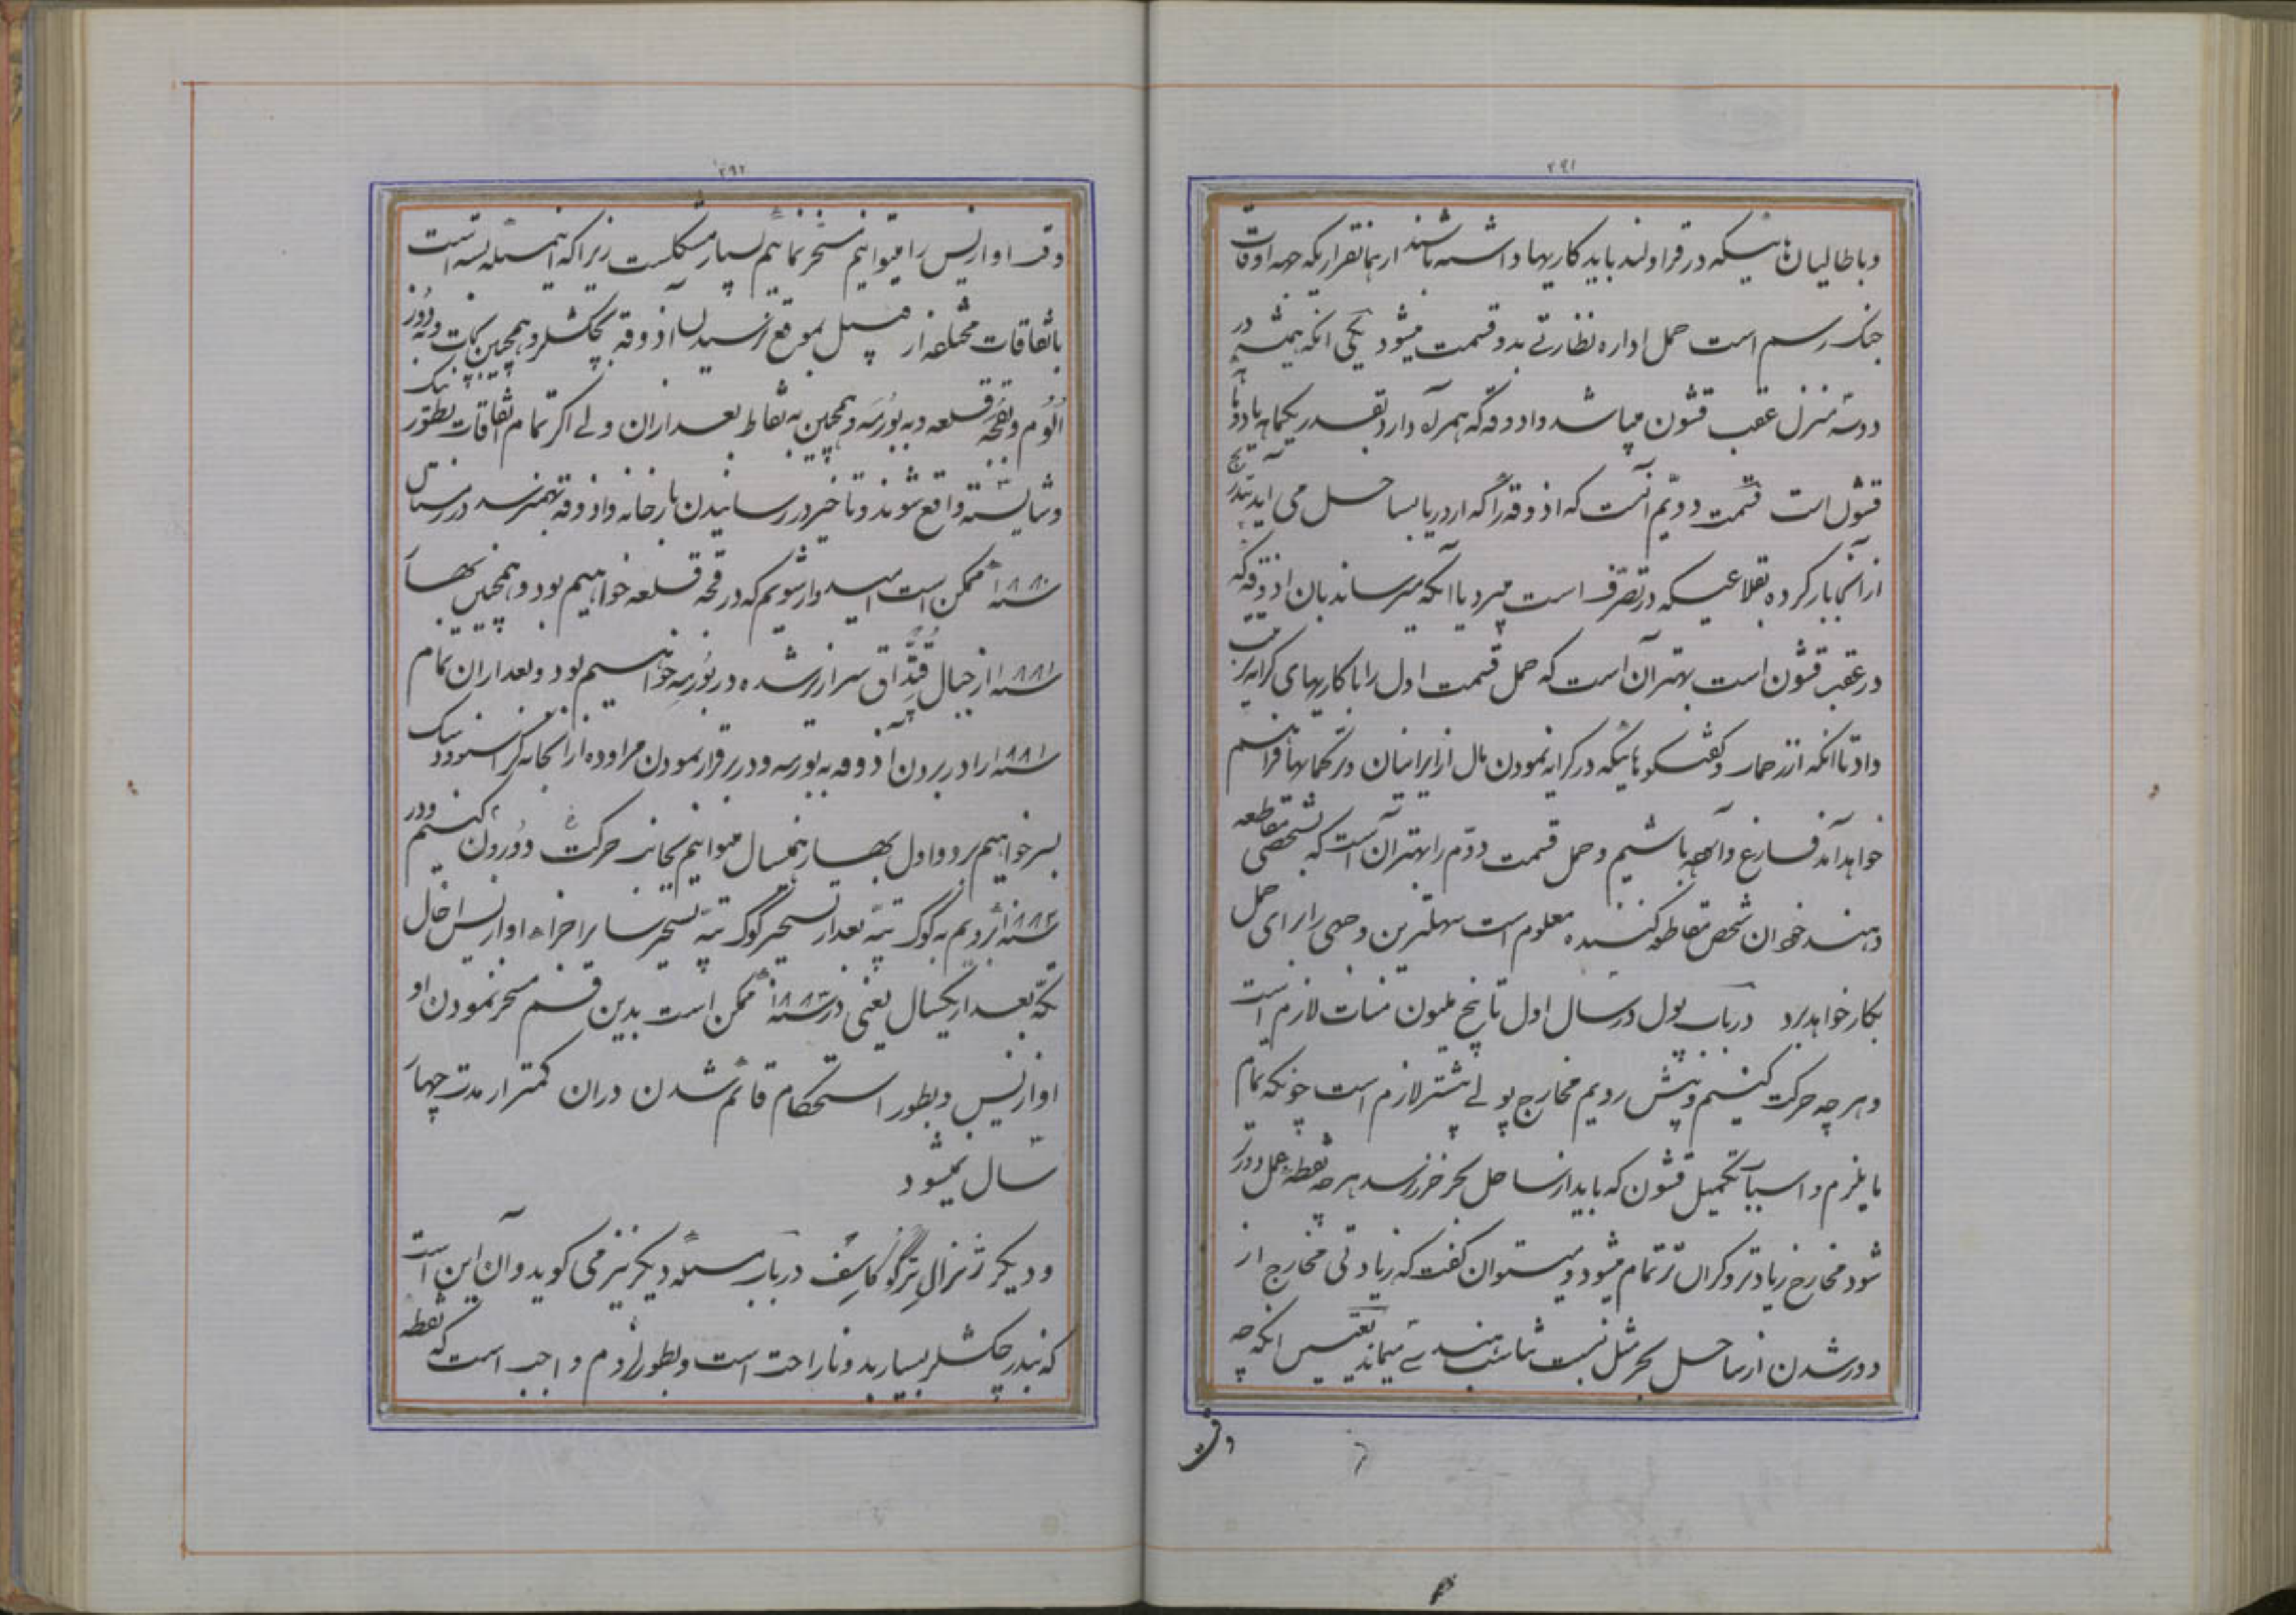 ۲۹۱
و باطالیان هائیکه در قراولند باید کاریها داشته باشند از همانقرار یکه همه اوقات
جنک رسم است حمل اداره نظارتی بدو قسمت میشود یکی انکه همیشه در
دو سه منزل عقب قشون میباشد و اذوقه که همراه دارد بقدر یکماهه یا دو ماهه
قشون است قسمت دویم آنست که اذوقه را که از دریا بساحل می اید بتدریج
از آنجا بار کرده بقلاعیکه در تصرف است میبرد یا انکه میرساند بان اذوقه که
در عقب قشون است بهتر آن است که حمل قسمت اول را با کاریهای کرایه ترتیب
داد تا انکه از زحمات و گفتگوهائیکه در کرایه نمودن مال از ایرانیان و ترکمانها فراهم
خواهد آمد فارغ و آسوده باشیم و حمل قسمت دوم را بهتر آن است که بشخصی مقاطعه
دهند خود ان شخص مقاطعه کننده معلوم است سهلترین وجهی را برای حمل
بکار خواهد برد در باب پول در سال اول تا پنج ملیون منات لازم است
و هر چه حرکت کنیم و پیش رویم مخارج پولی بیشتر لازم است چونکه تمام
مایلزم و اسباب تکمیل قشون که باید از ساحل بحر خزر برسد هر چه نقطه عمل دورتر
شود مخارج زیادتر و کران تر تمام میشود و میتوان کفت که زیادتی مخارج از
دور شدن از ساحل بحر مثل نسبت تناسب هندسی میماند تعیین انکه چه
وقت
۲۹۲
وقت اوازیس را میتوانیم مسخر نمائیم بسیار مشکلست زیرا که این مسئله بسته است
باتفاقات مختلفه از قبیل بموقع رسیدن اذوقه بچکشلر و همچنین بات و به دوز
الوم و بقجه قلعه و به بورسه و همچنین به نقاط بعد از ان ولی اکر تمام اتفاقات بطور نیک
و شایسته واقع شوند و تاخیر در رسانیدن بارخانه و اذوقه بهم نرسد در زمستان
سنه ۱۸۸۰ ممکن است امیدوار شویم که در قجه قلعه خواهیم بود و همچنین بهار
سنه ۱۸۸۱ از جبال قپّداق سرازیر شده در بورسه خواهیم بود و بعد از ان تمام
سنه ۱۸۸۱ را در بردن آذوقه به بورسه و در برقرار نمودن مراوده از انجا به کراسنوودسک
بسر خواهیم برد و اول بهار همسال میتوانیم بجانب حرکت دورون کنیم و در
سنه ۱۸۸۲ برویم به گوک تپه بعد از تسخیر گوک تپه تسخیر سایر اجزاء اوازیس اخال
تکه بعد از یکسال یعنی در سنه ۱۸۸۳ ممکن است بدین قسم مسخر نمودن او
اوازیس و بطور استحکام قائم شدن در ان کمتر از مدت چهار
سال نمیشود
و دیکر ژنرال ترگوکاسف در باب مسئله دیکر نیز می کوید و آن این است
که بندر چکشلر بسیار بد و ناراحت است و بطور لزوم واجب است که نقطه